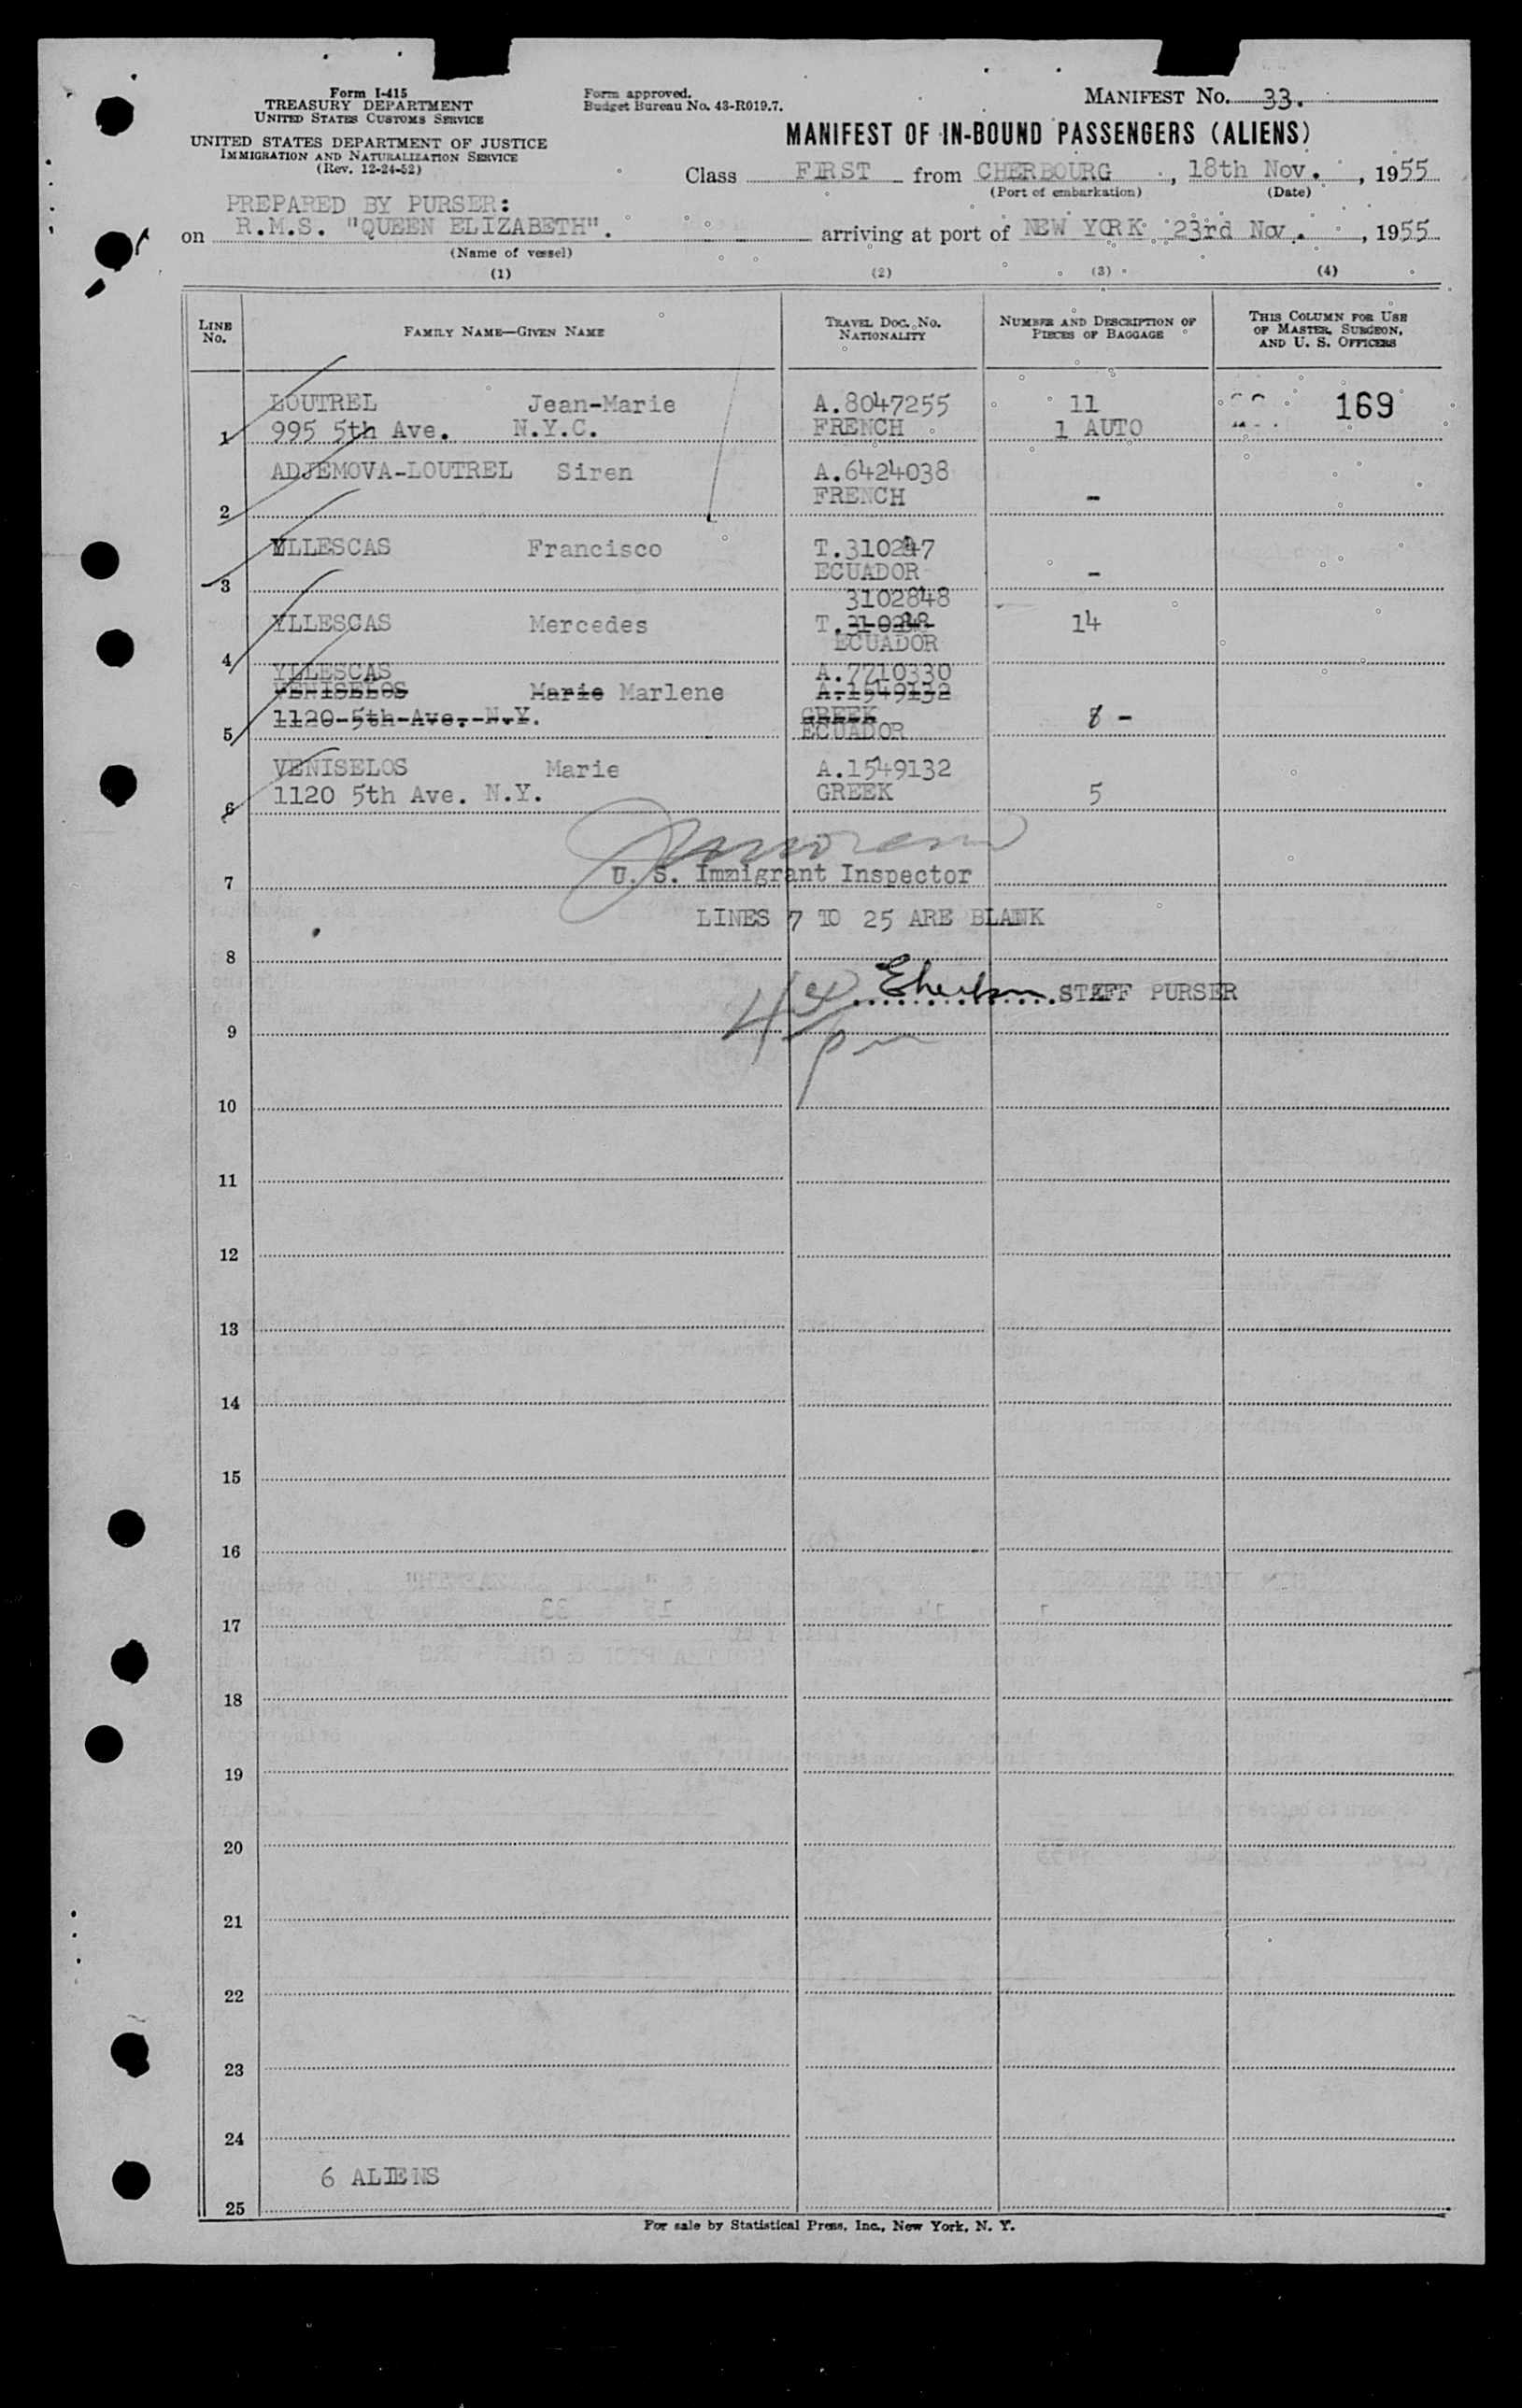 Form I-415
TREASURY DEPARTMENT
UNITED STATES CUSTOMS SERVICE
UNITED STATES DEPARTMENT OF JUSTICE
IMMIGRATION AND NATURALIZATION SERVICE
(Rev. 12-24-52)
Form approved.
Budget Bureau No. 43-R019.7.
MANIFEST NO. 33.
MANIFEST OF IN-BOUND PASSENGERS (ALIENS)
Class FIRST from CHERBOURG, 18th Nov., 1955
(Port of embarkation) (Date)
PREPARED BY PURSER:
on R.M.S. "QUEEN ELIZABETH". arriving at port of NEW YORK 23rd Nov., 1955
(Name of vessel)
(1) (2) (3) (4)
LINE No. FAMILY NAME—GIVEN NAME TRAVEL DOC. NO. NATIONALITY NUMBER AND DESCRIPTION OF PIECES OF BAGGAGE THIS COLUMN FOR USE OF MASTER, SURGEON, AND U. S. OFFICERS
LOUTREL Jean-Marie A.8047255 11 169
1 995 5th Ave. N.Y.C. FRENCH 1 AUTO
ADJEMOVA-LOUTREL Siren A.6424038
2 FRENCH -
YLLESCAS Francisco T.310247
3 ECUADOR -
3102848
YLLESCAS Mercedes T. 14
4 ECUADOR
YLLESCAS A.7710330
VENISELOS Marie Marlene A.1549132
1120 5th Ave. N.Y. GREEK 8 -
5 ECUADOR
VENISELOS Marie A.1549132
6 1120 5th Ave. N.Y. GREEK 5
7 U. S. Immigrant Inspector
LINES 7 TO 25 ARE BLANK
8
STAFF PURSER
9
10
11
12
13
14
15
16
17
18
19
20
21
22
23
24
6 ALIENS
25
For sale by Statistical Press, Inc., New York, N. Y.